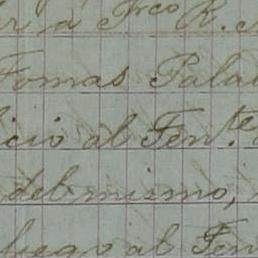 r á Frco R.
Tomas Pala
icio al Ten.te
del mismo,
fuego al Ten